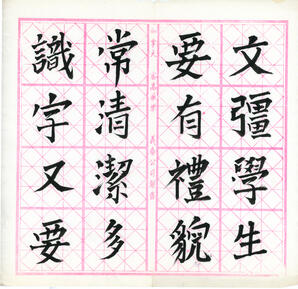 文彊學生
要有禮貌
常清潔多
識字又要